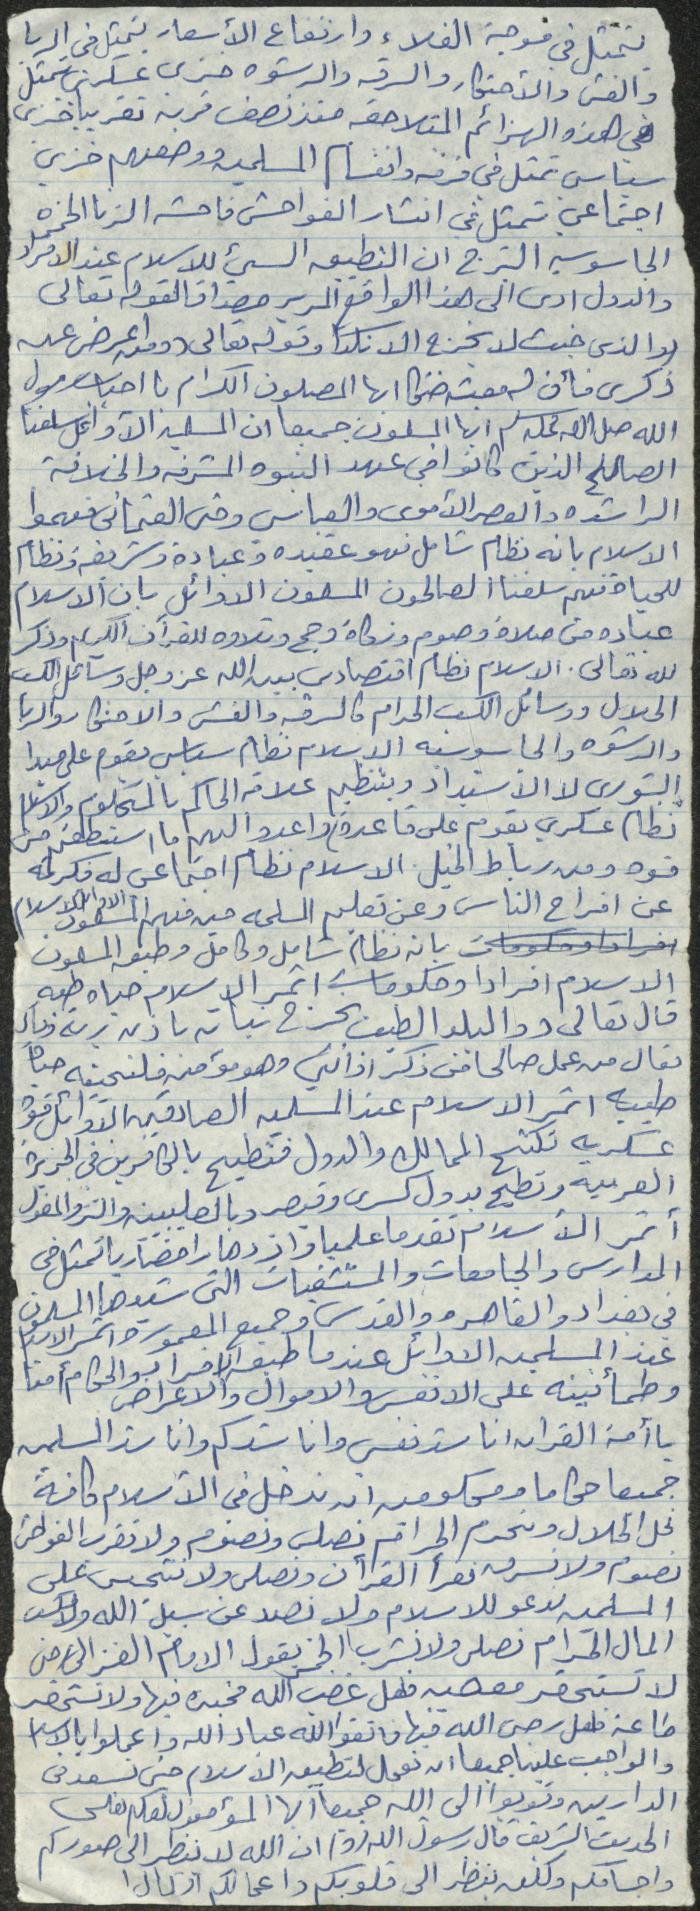 يتمثل في موجة الغلاء وارتفاع الأسعار يتمثل في الربا
والغش والأحتكار والسرقه والرشوه خزى عسكري يتمثل
في هذه الهزائم المتلاحقه منذ نصف قرنه تقريبا خزى
سياسي تمثل في فرقه وانقسام المسلمين وضعفهم خزي
اجتماعي يتمثل في انتشار الفواحش فاحشه الزنا الخمر
الجاسوسيه التبرج ان التطبيق السيئ للاسلام عند الافراد
والدول ادى الى هذا الواقع المرير مصداقا لقوله تعالى
(والذي خبث لا يخرج الا نكدا) وقوله تعالى (ومن اعرض عن
ذكرى فأن له معيشه ضنكا ايها المصلون الكرام يا احباب رسول
الله صلى الله عليه وسلم ايها المسلمون جميعا ان المسلمين الأوائل سلفنا
الصالح الذين كانوا في عهد النبوه المشرفه والخلافة
الراشده والعصر الأموى والعباسي وحتى العثماني فهموا
الاسلام بانه نظام شامل فهو عقيده وعبادة وشريعة ونظام
للحياة فهم سلفنا الصالحون المسلمون الاوائل بان الاسلام
عباده من صلاة وصوم وزكاة وحج وتلاوه للقرآن الكريم وذكر
لله تعالى . الاسلام نظام اقتصادى بين الله عز وجل وسائل الكسب
الحلال ووسائل الكسب الحرام كالسرقه والغش والاحتكار والربا
والرشوه والجاسوسيه الاسلام نظام سياسي يقوم على مبدا
الشورى لا الأستبداد وبتنظيم علاقة الحاكم بالمحكوم والاسلام
نظام عسكري يقوم على قاعدة (واعدوا لهم ما استطعتم من
قوه ومن رباط الخيل . الاسلام نظام اجتماعي له فكرته
عن افراح الناس وعن تعليم المسلمه حين فهم المسلمون الاوائل الاسلام
افرادا وحكومات بانه نظام شامل وكامل وطبق المسلمون
الاسلام افرادا وحكومات اثمر الاسلام حياه طيبه
قال تعالى (والبلد الطيب يخرج نباته باذن ربه) وقال
تعالى من عمل صالحا من ذكر او انثى وهو مؤمن فلنحيينه حياة
طيبه اثمر الاسلام عند المسلمين الصادقين الأوائل قوة
عسكريه تكتسح الممالك والدول فتطيح بالكافرين في الجزيرة
العربيه وتطيح بدول كسرى وقيصر وبالصليبيين والتتر والمغول
أثمر الأسلام تقدما علميا وازدهارا حضاريا تمثل في
المدارس والجامعات والمستشفيات التي شيدها المسلمون
في بغداد والقاهره والقدس وجميع المعموره اثمر الاسلام
عند المسلمين الاوائل عندما طبقه الافراد والحكام أمنا
وطمأنينه على الانفس والاموال والاعراض
يا أمة القران اناشد نفسي واناشدكم واناشد المسلمين
جميعا حكاما ومحكومين ان ندخل في الأسلام كافة
نحل الحلال ونحرم الحرام نصلى ونصوم ولا نقرب الفواحش
نصوم ولا نسرق نقرأ القرآن ونصلى ولا نتجسس على
المسلمين ندعو للاسلام ولا نصد عن سبيل الله ولا نكسب
المال الحرام نصلى ولا نشرب الخمر يقول الامام الغزالى
لا تستحقر معصيه فلعل غضب الله مخبوء فيها ولا تستحقر
طاعة فلعل رضى الله فيها فاتقوا الله عباد الله واعملوا بالاسلام
والواجب علينا جميعا ان نعمل لتطبيق الاسلام حتى نسعد في
الدارين وتوبوا الى الله جميعا ايها المؤمنون لعلكم تفلحون
الحديث الشريف قال رسول الله (ص) ان الله لا ينظر الى صوركم
واجسامكم ولكن ينظر الى قلوبكم واعمالكم او كما قال